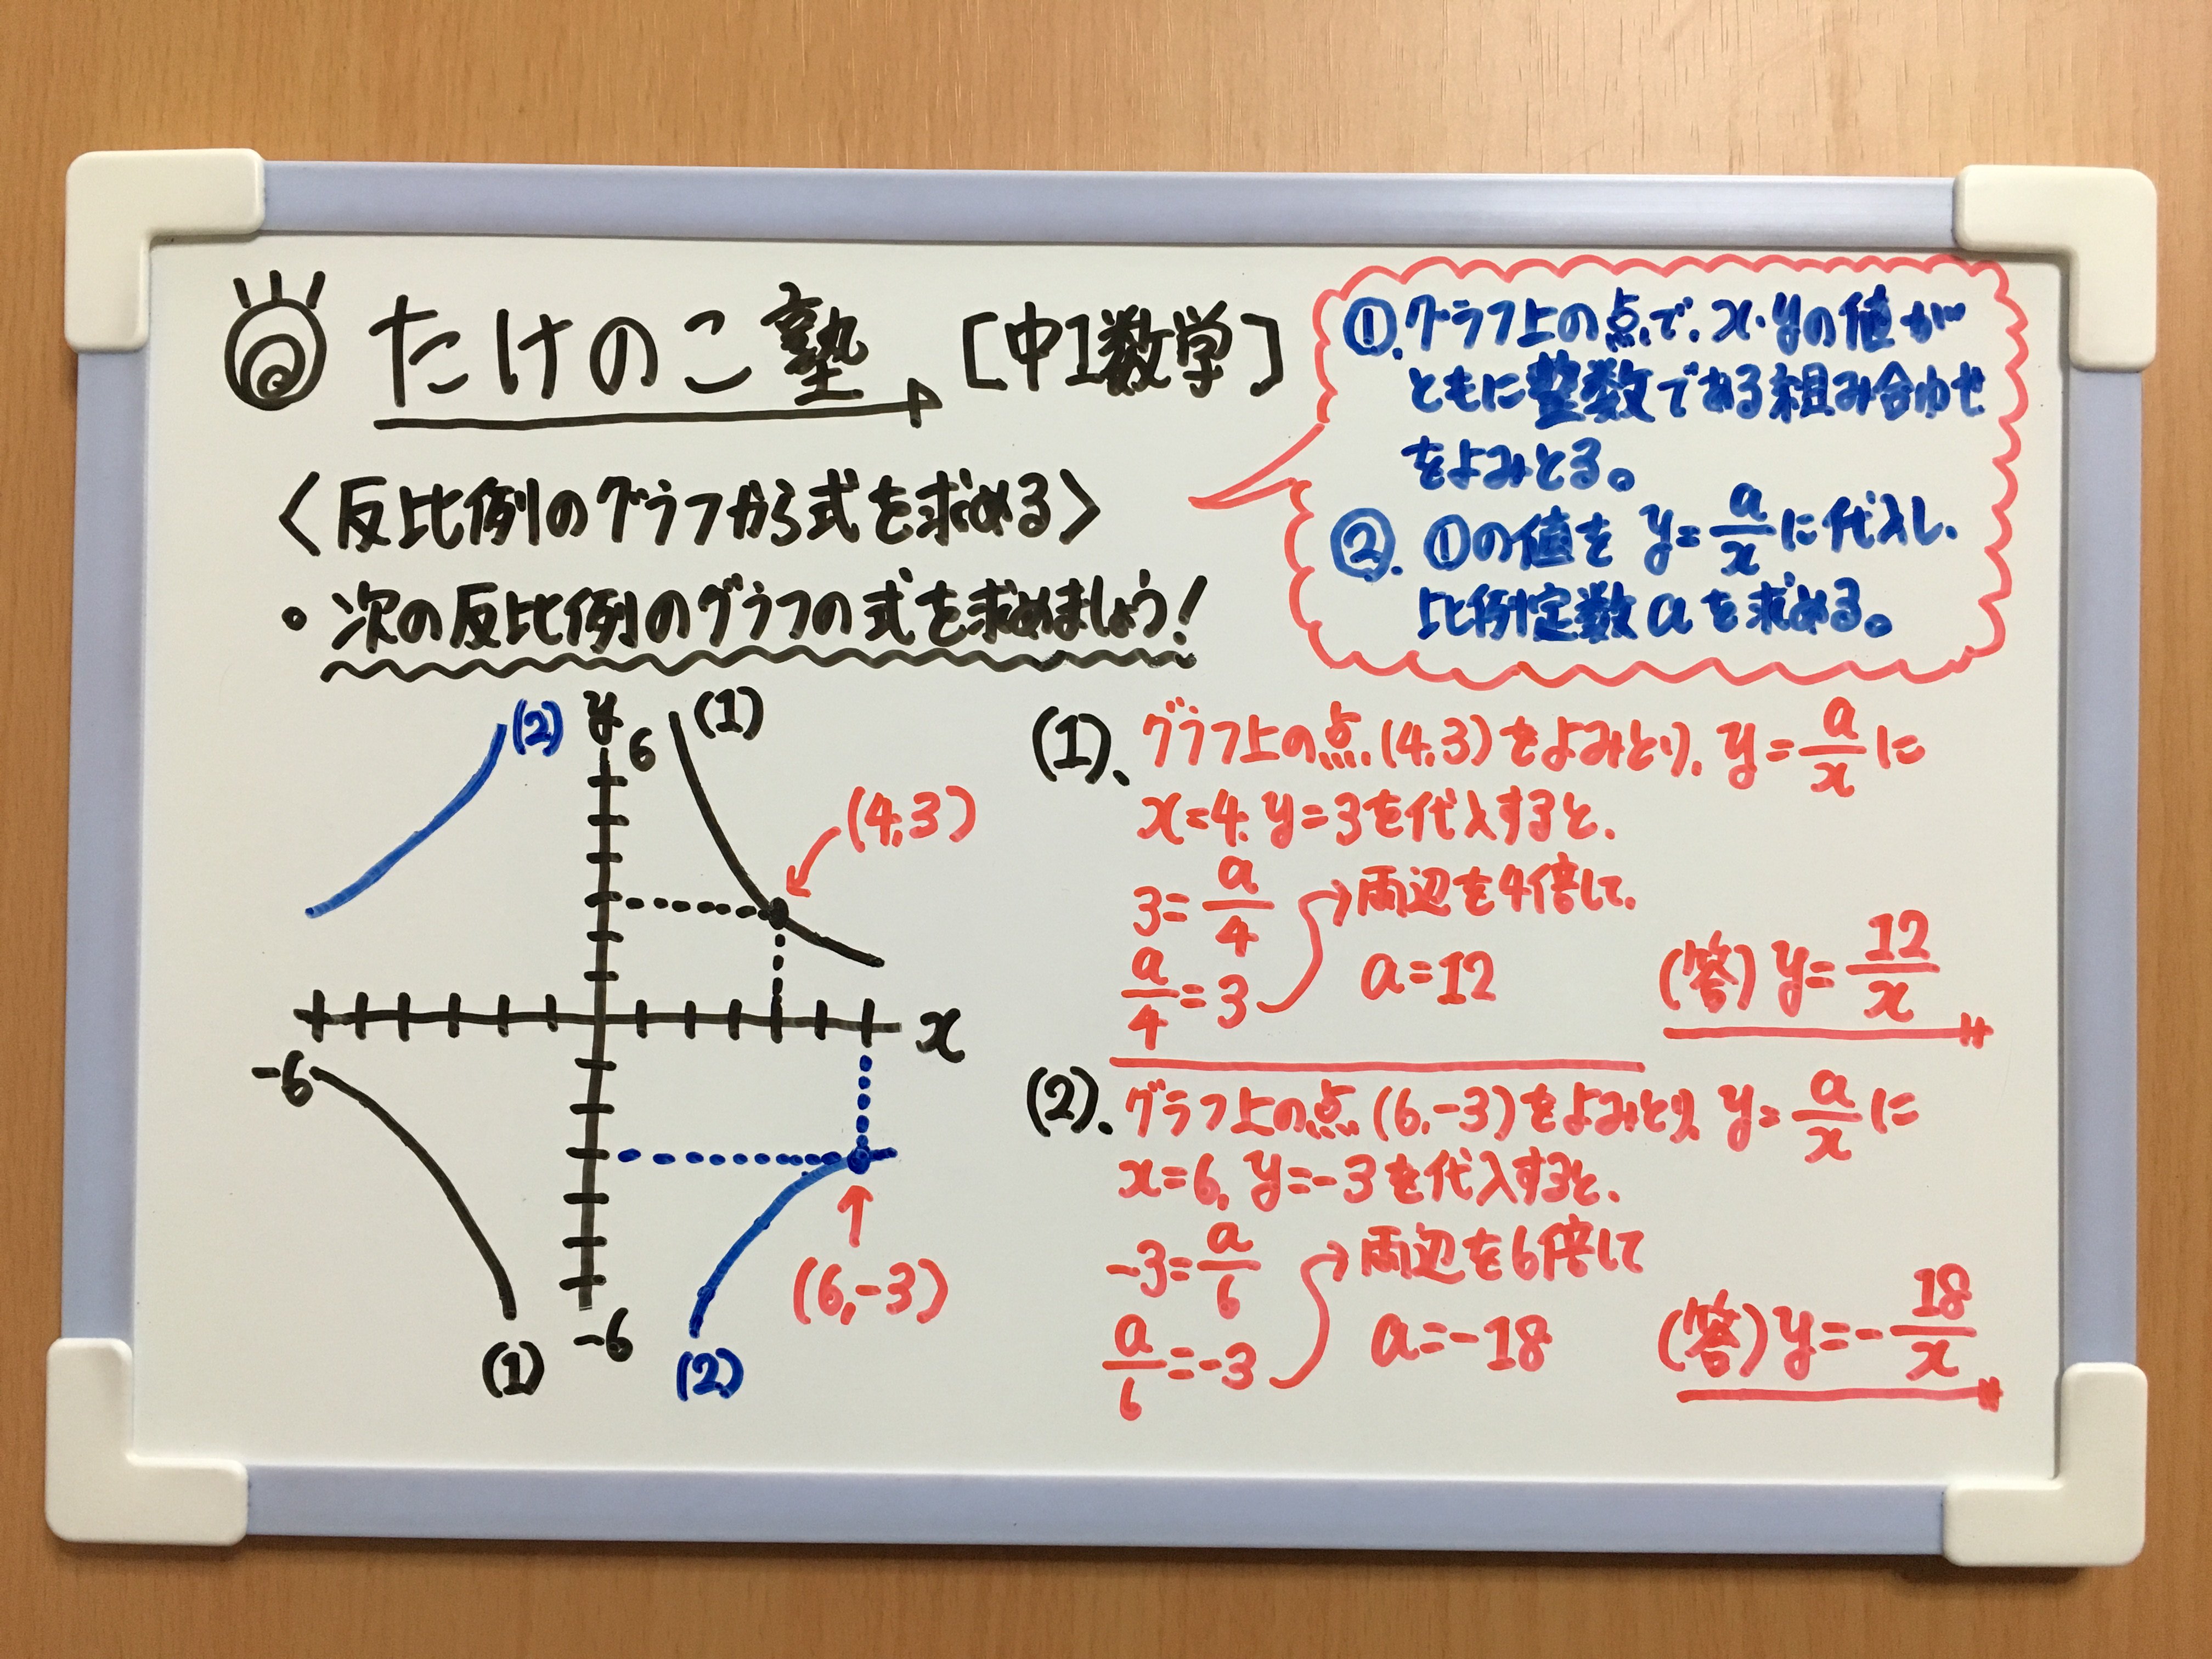 たけのこ塾 [中1数学]
<反比例のグラフから式を求める>
・次の反比例のグラフの式を求めましょう!
①.グラフ上の点で、x・yの値が
ともに整数である組み合わせ
をよみとる。
②.①の値を y=a/xに代入し、
比例定数aを求める。
(2)
y
6
(1)
(4,3)
x
-6
(6,-3)
(1)
-6
(2)
(1)、グラフ上の点(4,3)をよみとり、y=a/xに
x=4、y=3を代入すると、
3=a/4
両辺を4倍して、
a/4=3
a=12
(答) y=12/x
(2).グラフ上の点(6,-3)をよみとり、y=a/xに
x=6、y=-3を代入すると、
-3=a/6
両辺を6倍して
a/6=-3
a=-18
(答) y=-18/x